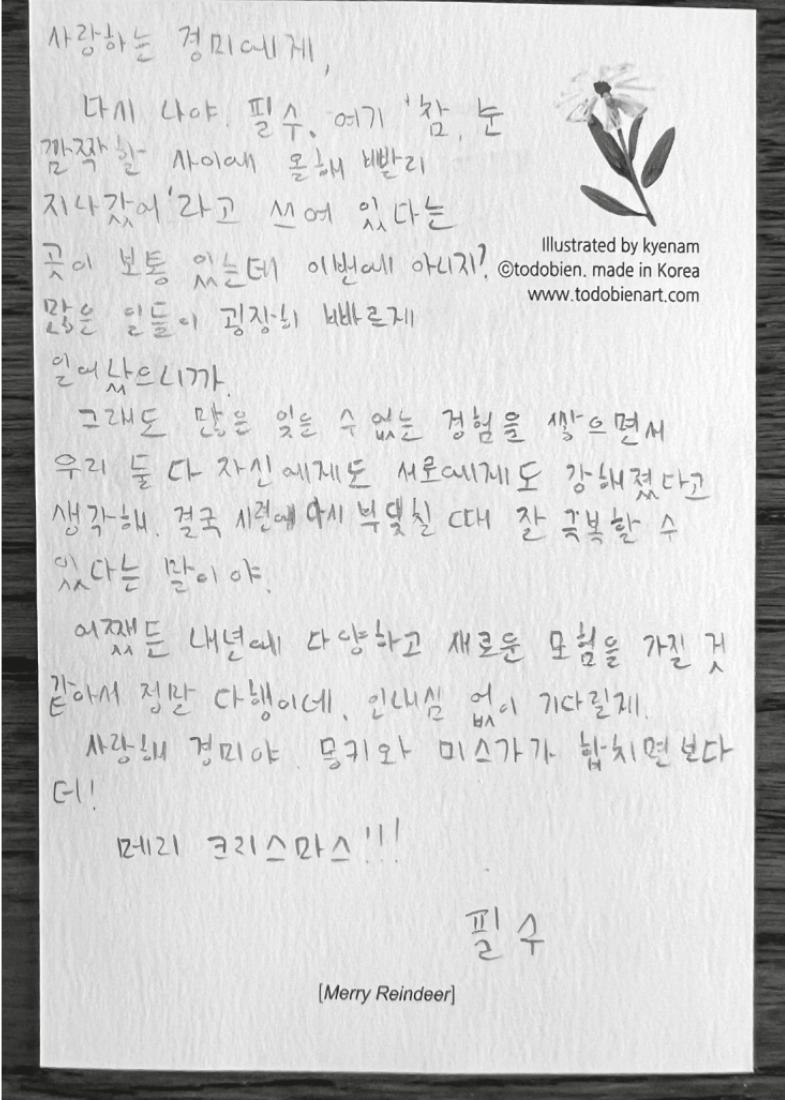 사랑하는 경미에게,
다시 나야. 필수. 여기 '참, 눈
깜짝할 사이에 올해 빨리
지나갔어'라고 쓰여 있다는
곳이 보통 있는데 이번에 아니지?
Illustrated by kyenam
©todobien. made in Korea
www.todobienart.com
많은 일들이 굉장히 빠르게
일어났으니까.
그래도 많은 잊을 수 없는 경험을 쌓으면서
우리 둘 다 자신에게도 서로에게도 강해졌다고
생각해. 결국 시련에 다시 부딪칠 때 잘 극복할 수
있다는 말이야.
어쨌든 내년에 다양하고 새로운 모험을 가질 것
같아서 정말 다행이네. 인내심 없이 기다릴게.
사랑해 경미야. 몽키와 미스가가 합치면보다
더!
메리 크리스마스!!!
필수
[Merry Reindeer]